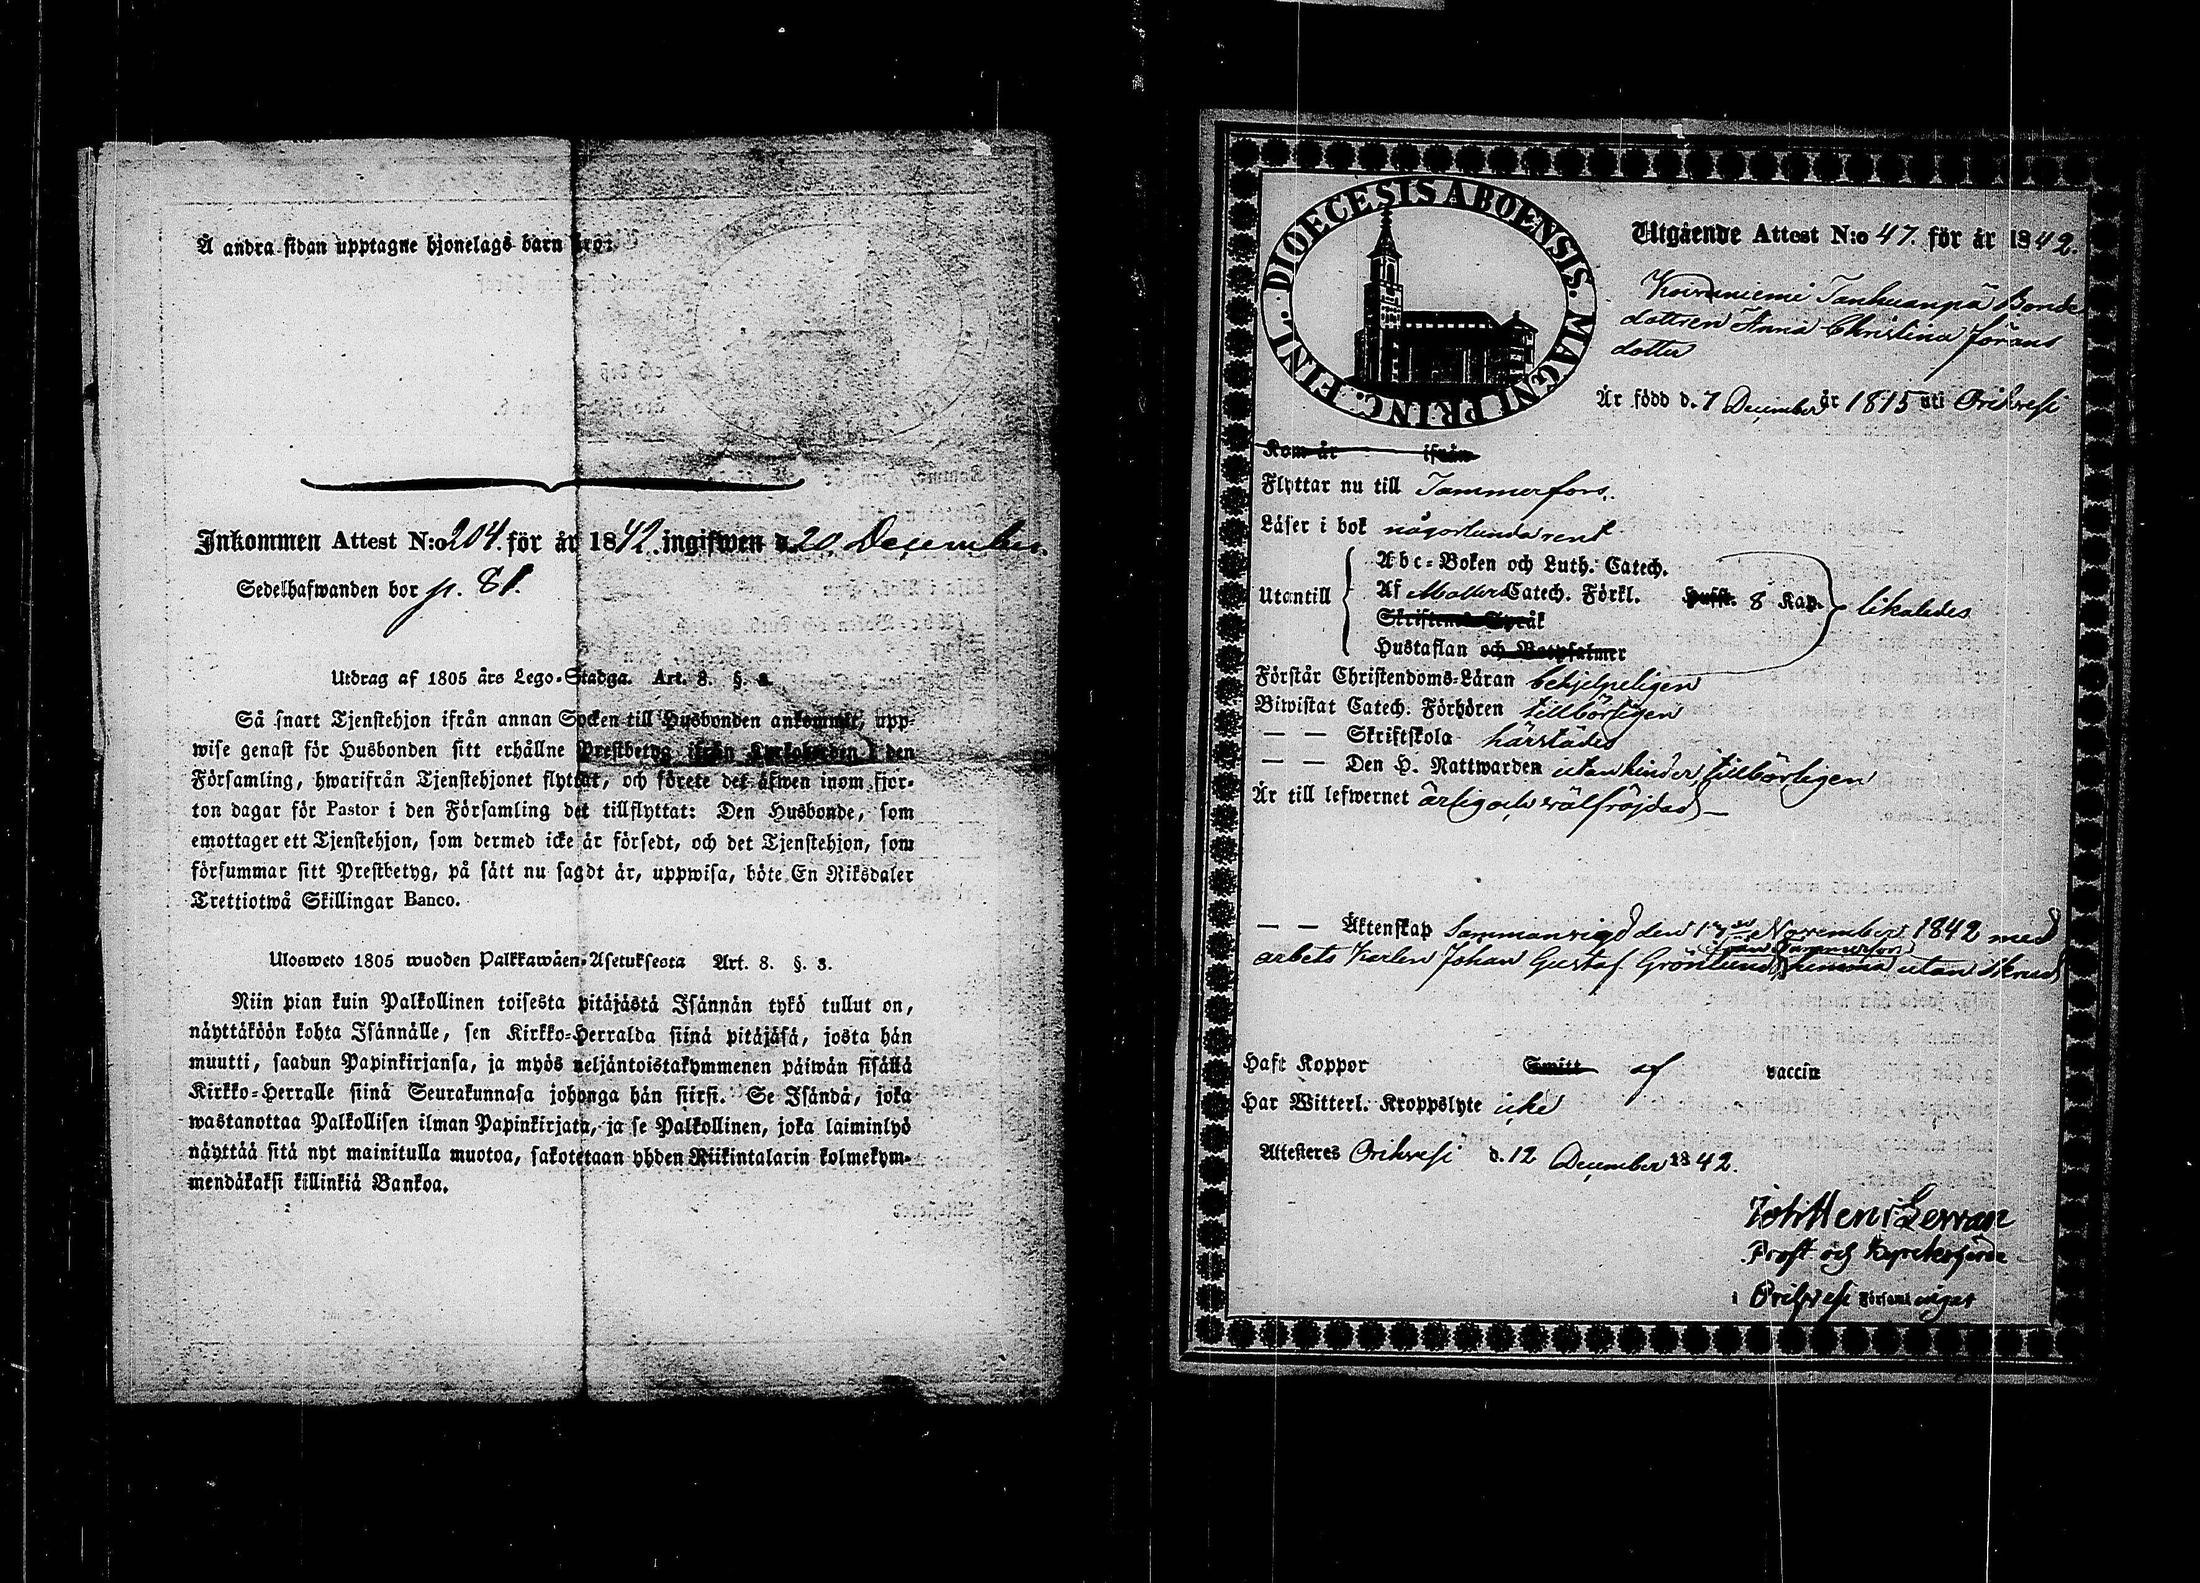 Å andra sidan upptagne hjonelags barn äro:
Inkommen Attest N:o 204. för år 1842. ingifwen d. 20 December.
Sedelhafwanden bor p. 81.
Utdrag af 1805 års Lego-Stadga. Art. 8. §. 3.
Så snart Tjenstehjon ifrån annan Socken till Husbonden ankommit, upp-
wise genast för Husbonden sitt erhållne Prestbetyg ifrån Kyrkoherden i den
Församling, hwarifrån Tjenstehjonet flyttat, och förete det äfwen inom fjor-
ton dagar för Pastor i den Församling det tillflyttat: Den Husbonde, som
emottager ett Tjenstehjon, som dermed icke är försedt, och det Tjenstehjon, som
försummar sitt Prestbetyg, på sätt nu sagdt är, uppwisa, böte En Riksdaler
Trettiotwå Skillingar Banco.
Ulosweto 1805 wuoden Palkkawäen-Asetuksesta Art. 8. §. 3.
Niin pian kuin Palkollinen toisesta pitäjästä Isännän tykö tullut on,
näyttäköön kohta Isännälle, sen Kirkko-Herralda siinä pitäjäsä, josta hän
muutti, saadun Papinkirjansa, ja myös neljäntoistakymmenen päiwän sisällä
Kirkko-Herralle siinä Seurakunnasa johonga hän siirsi. Se Isändä, joka
wastanottaa Palkollisen ilman Papinkirjata, ja se Palkollinen, joka laiminlyö
näyttää sitä nyt mainitulla muotoa, sakotetaan yhden Riikintalarin kolmekym-
mendäkaksi killinkiä Bankoa.
DIOECESIS ABOENSIS. MAGNI PRINC. FINL.
Utgående Attest N:o 47. för år 1842.
Koivuniemi Tanhuanpä Bonde
dottren Anna Christina Jörans
dotter
Är född d. 7 December år 1815 uti Orihvesi
Kom år ifrån
Flyttar nu till Tammerfors.
Läser i bok någorlunda rent
Abc-Boken och Luth. Catech.
Utantill Af Mollers Catech. Förkl. 8 Kap. likaledes
Skriftenes Språk
Hustaflan och Botpsalmer
Förstår Christendoms-Läran behjelpeligen
Biwistat Catech. Förhören tillbörligen
— — Skriftskola härstädes
— — Den H. Nattwarden utan hinder, tillbörligen
Är till lefwernet ärlig och välfröjdad —
— — Äktenskap Sammanvigd den 13de November 1842 med
från Tammerfors
arbets Karlen Johan Gustaf Grönlund hemma utan skrud
Haft Koppor Smitt af vaccin
Har Witterl. Kroppslyte icke
Attesteres Orihvesi d. 12 December 1842.
Joh Henr Lewan
Prost och Kyrkoherde
i Orihvesi Församlinget